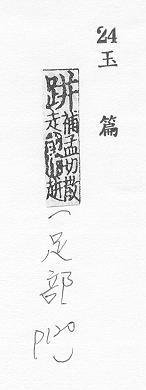 24
玉篇
跰
補孟切散
走
(足部
P120)